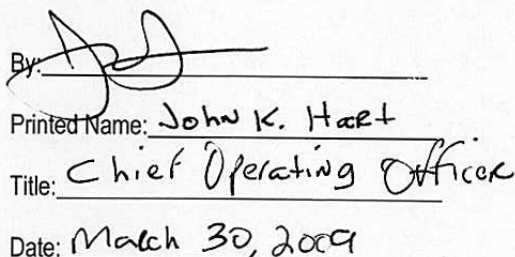 By:
Printed Name: John K. Hart
Title: Chief Operating Officer
Date: March 30, 2009